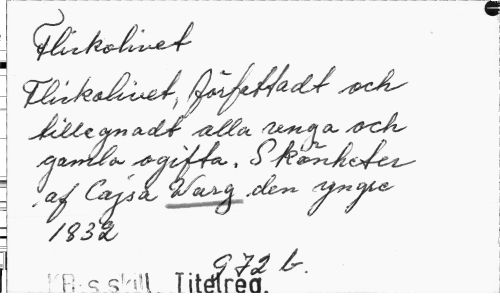 Flickolivet
Flickolivet, författadt och
tillegnadt alla unga och
gamla ogifta. Skönheter
af Cajsa Warg den yngre
1832
972 b.
KB:s skill. Titelreg.